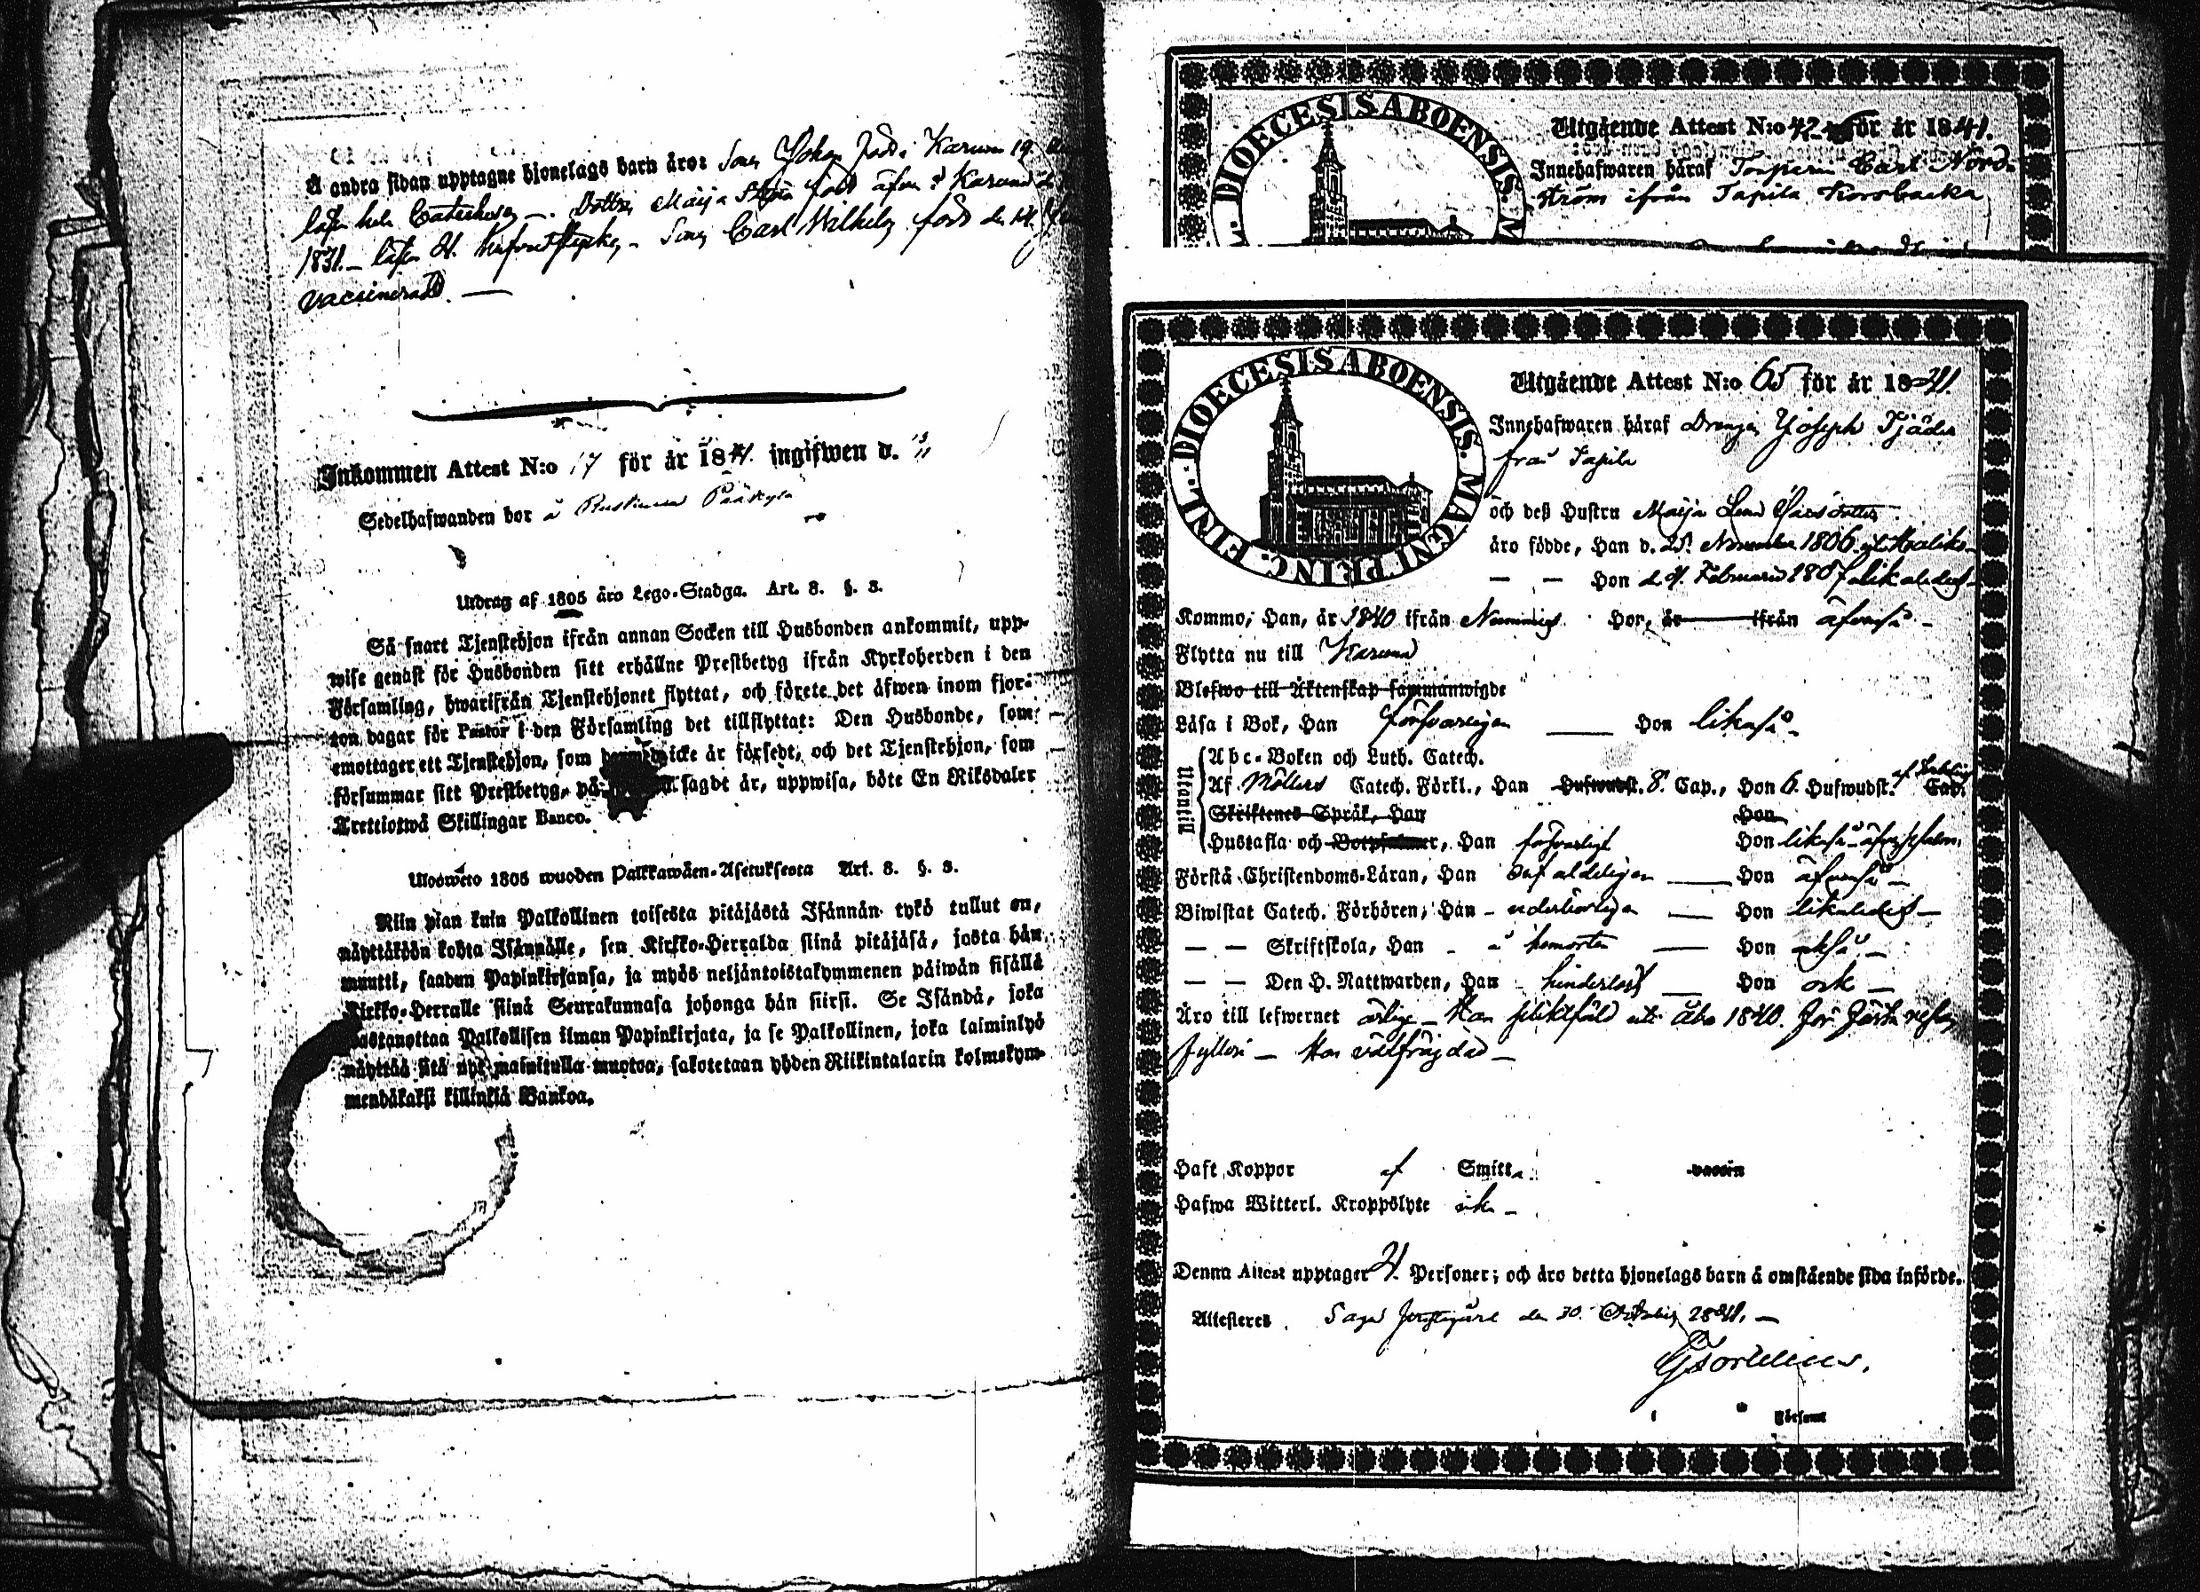 Å andra sidan upptagne hjonelags barn äro: Son Johan född i Karuna 19
läser hela Catechesen —. Dottren Maija Stina född äfven i Karuna d.
1831. — läser 2 hufvudstycken — Son Carl Wilhelm född den 14
vaccinerad. —
Inkommen Attest N:o 17 för år 1841. ingifwen d.
Sedelhafwanden bor å Rusthåll
Utdrag af 1805 års Lego-Stadga. Art. 8. §. 3.
Så snart Tjenstehjon ifrån annan Socken till Husbonden ankommit, upp-
wise genast för Husbonden sitt erhållne Prestbetyg ifrån Kyrkoherden i den
Församling, hwarifrån Tjenstehjonet flyttat, och förete det äfwen inom fjor-
ton dagar för Pastor i den Församling det tillflyttat: Den Husbonde, som
emottager ett Tjenstehjon, som dermed icke är försedt, och det Tjenstehjon, som
försummar sitt Prestbetyg, på sagdt är, uppwisa, böte En Riksdaler
Trettiotwå Skillingar Banco.
Ulosweto 1805 wuoden Palkkawäen-Asetuksesta Art. 8. §. 3.
Niin pian kuin Palkollinen toisesta pitäjästä Isännän tykö tullut on,
näyttäköön kohta Isännälle, sen Kirkko-Herralda siinä pitäjäsä, josta hän
muutti, saadun Papinkirjansa, ja myös neljäntoistakymmenen päiwän sisällä
Kirkko-Herralle siinä Seurakunnasa johonga hän siirsi. Se Isändä, joka
wastanottaa Palkollisen ilman Papinkirjata, ja se Palkollinen, joka laiminlyö
näyttää sitä nyt mainitulla muotoa, sakotetaan yhden Riikintalarin kolmekym-
mendäkaksi killinkiä Bankoa.
DIOECESIS ABOENSIS. M
Utgående Attest N:o 42 för år 1841.
Innehafwaren häraf Carl Nord-
ström ifrån Tapila Korsbacka
DIOECESIS ABOENSIS. MAGNI PRINC. FINL.
Utgående Attest N:o 65 för år 1841.
Innehafwaren häraf Drengen Joseph Tjäder
från Tapila
och deß Hustru Maija Lena
äro födde, Han d. 25 November 1806
— — Hon d. 4. Februarii 180 likaledes
Kommo; Han, år 1840 ifrån Nummis Hon, år ifrån äfvenså —
Flytta nu till Karuna
Blefwo till Äktenskap sammanwigde
Läsa i Bok, Han försvarligen — Hon likaså —
Utantill
Abc-Boken och Luth. Catech.
Af Möllers Catech. Förkl., Han Hufwudst. 8. Cap., Hon 6. Hufwudst. Cap.
Skriftenes Språk, Han Hon
Hustafla och Botpsalmer, Han försvarligt Hon likaså
Förstå Christendoms-Läran, Han enfaldeligen — Hon äfvenså —
Biwistat Catech. Förhören; Han — Hon likaledes —
— — Skriftskola, Han — Hon
— — Den H. Nattwarden, Han hinderlöst — Hon ock —
Äro till lefwernet ärlige — Han uti Åbo 1840. För
fylleri — Hon välfrägdad —
Haft Koppor af Smitta. vaccin
Hafwa Witterl. Kroppslyte —
Denna Attest upptager Personer; och äro detta hjonelags barn å omstående sida införde.
Attesteres Sagu Prestegård den 30. October 1841. —
Församl